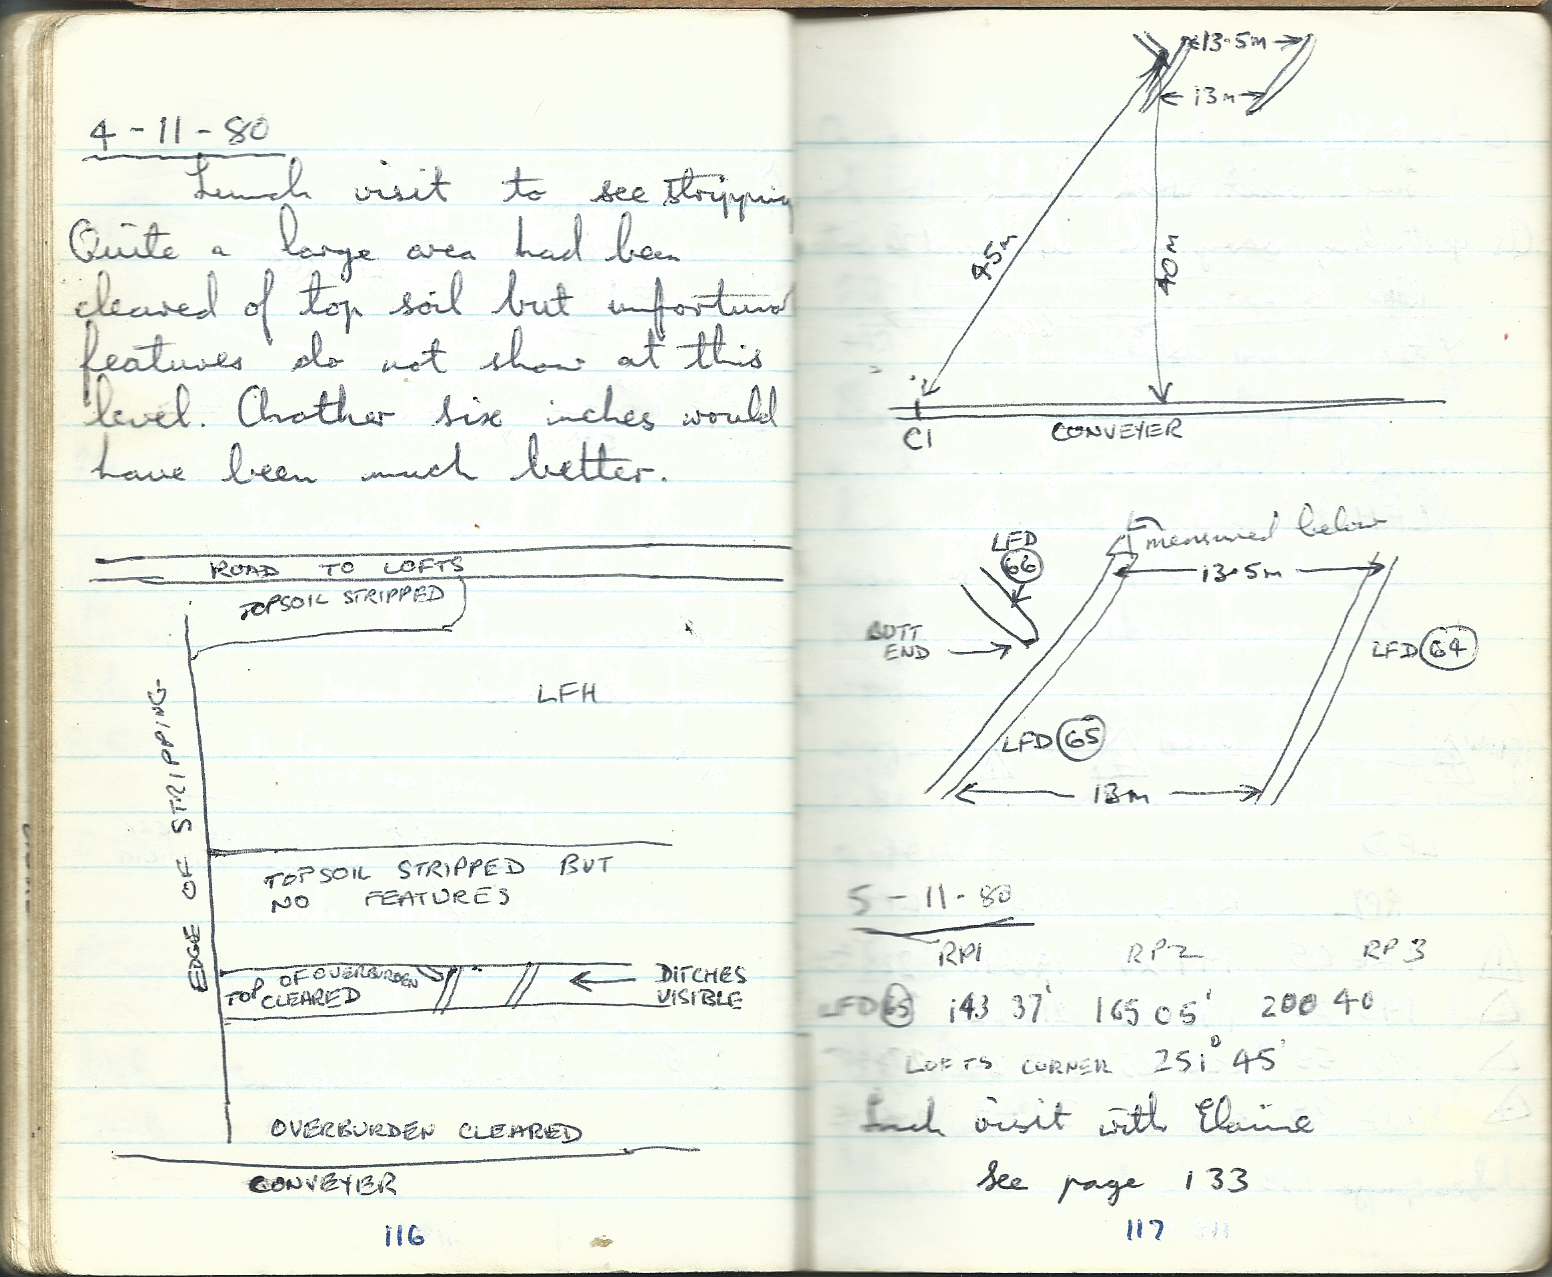 4 - 11 - 80
Lunch visit to see stripping
Quite a large area had been
cleared of top soil but unfortuna
features do not show at this
level. Another six inches would
have been much better.
ROAD TO LOFTS
TOPSOIL STRIPPED
LFH
EDGE OF STRIPPING
TOPSOIL STRIPPED BUT
NO FEATURES
TOP OF OVERBURDEN
CLEARED
DITCHES
VISIBLE
OVERBURDEN CLEARED
CONVEYER
116
13.5m
13m
45m
40m
C1
CONVEYER
measured below
LFD
66
13.5m
BUTT
END
LFD 64
LFD 65
13m
5 - 11 - 80
RP1 RP2 RP3
LFD 65 143 37' 165 05' 200 40
LOFTS CORNER 251° 45'
Lunch visit with Elaine
See page 133
117